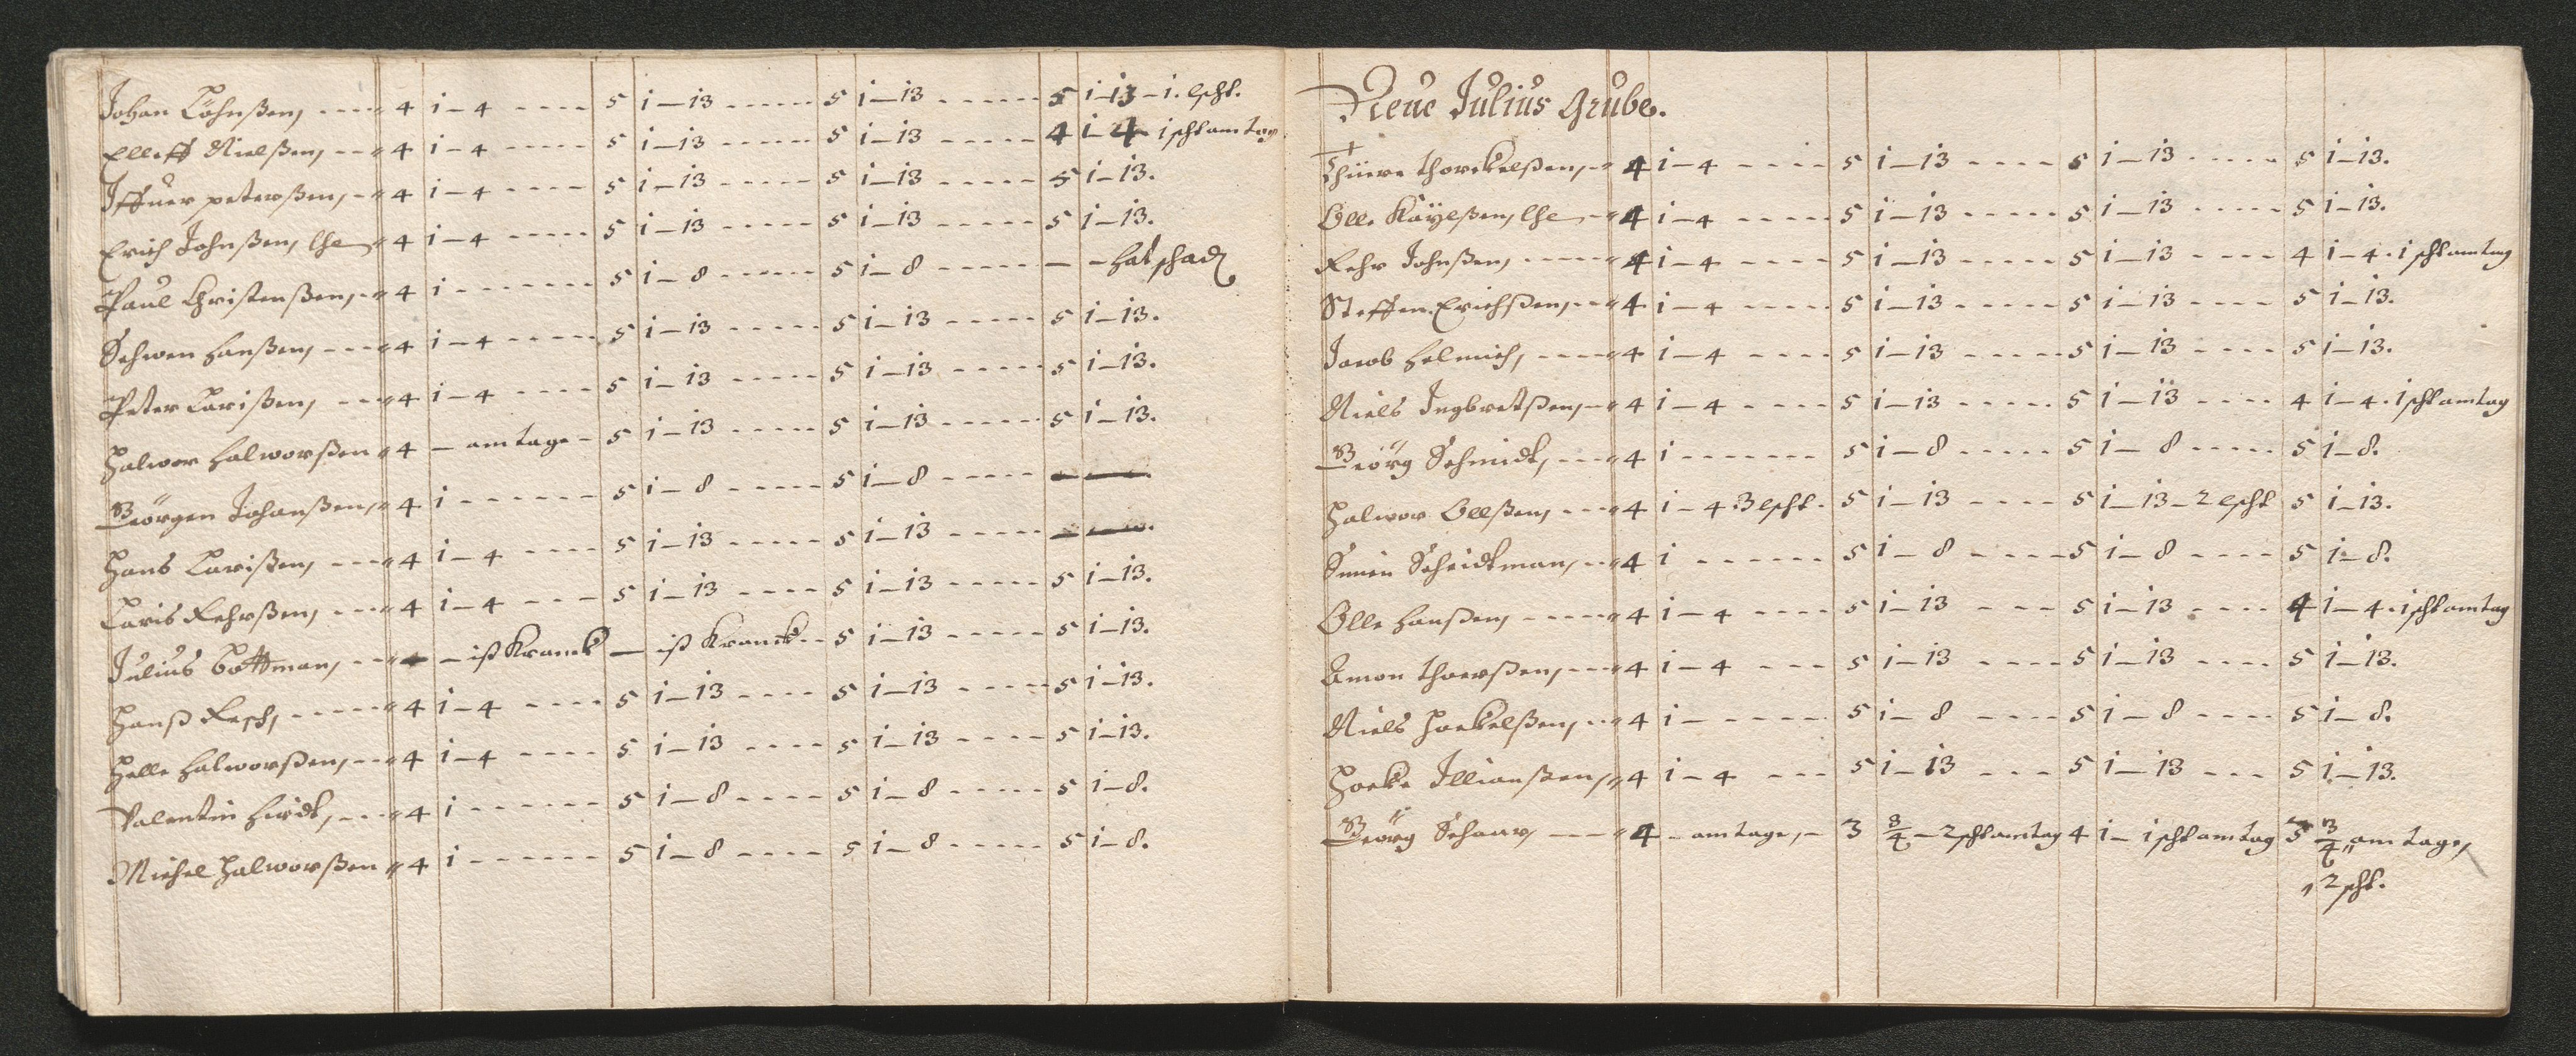 Johan Cöhnßen, ---- 4 i-4 ---- 5 i-13 ----- 5 i-13 ------ 5 i-13-i. lsht.
Elleff Nielßen, --- 4 i-4 ----- 5 i-13 ----- 5 i-13 ----- 4 i-4 i sht am tag
Iffuer peterßen, -- 4 i-4 ---- 5 i-13 ----- 5 i-13 ----- 5 i-13.
Erich Johnßen, lhe 4 i-4 ----- 5 i-13 ----- 5 i-13 ----- 5 i-13.
Paul Christenßen, -- 4 i ------- 5 i-8 ----- 5 i-8 ----- - - hat schad
Schwen Hanßen, --- 4 i-4 ----- 5 i-13 ----- 5 i-13 ----- 5 i-13.
Peter Larißen, --- 4 i-4 ---- 5 i-13 ----- 5 i-13 ----- 5 i-13.
Halwor Halworßen 4 - am tage - 5 i-13 ----- 5 i-13 ----- 5 i-13.
Beörgen Johanßen, 4 i ------ 5 i-8 ----- 5 i-8 -----
Hans Larißen, --- 4 i-4 ---- 5 i-13 ----- 5 i-13 -----
Laris Fehrßen, --- 4 i-4 --- 5 i-13 ---- 5 i-13 ----- 5 i-13.
Julius Bottman, --- - ist Kranck - ist Kranck -- 5 i-13 ----- 5 i-13.
Hanß Resch, ----- 4 i-4 ---- 5 i-13 ---- 5 i-13 ----- 5 i-13.
Helle Halworßen, -- 4 i-4 ---- 5 i-13 ---- 5 i-13 ---- 5 i-13.
Valentin Hirdt, --- 4 i ------ 5 i-8 ---- 5 i-8 ----- 5 i-8.
Michel Halworßen 4 i ------ 5 i-8 ---- 5 i-8 ----- 5 i-8.
Neue Julius Grube.
Thorckelßen, -- 4 i-4 ---- 5 i-13 ---- 5 i-13 ----- 5 i-13.
Olle Käyelßen, lhe -- 4 i-4 ----- 5 i-13 ----- 5 i-13 ----- 5 i-13.
Fehr Johnßen, ----- 4 i-4 ---- 5 i-13 ----- 5 i-13 ---- 4 i-4. i sht am tag
Steffen Erichßen, -- 4 i-4 ----- 5 i-13 ----- 5 i-13 ---- 5 i-13.
Jacob Helmich, ---- 4 i-4 ---- 5 i-13 ----- 5 i-13 ---- 5 i-13.
Niels Ingbretßen, -- 4 i-4 ---- 5 i-13 ----- 5 i-13 ---- 4 i-4. i sht am tag
Beörg Schmidt, --- 4 i ------- 5 i-8 ----- 5 i-8 ----- 5 i-8.
Halwor Ollßen, --- 4 i-4 3 lsht. 5 i-13 ---- 5 i-13-2 lsht 5 i-13.
Scheidtman, -- 4 i ------ 5 i-8 ----- 5 i-8 ---- 5 i-8.
Olle Hanßen, ----- 4 i-4 ---- 5 i-13 --- 5 i-13 ---- 4 i-4. i sht am tag
Amon Thorrßen, --- 4 i-4 --- 5 i-13 ---- 5 i-13 ---- 5 i-13.
Niels Hockelßen, -- 4 i- ----- 5 i-8 ---- 5 i-8 ---- 5 i-8.
Hocke Illianßen, 4 i-4 --- 5 i-13 --- 5 i-13 --- 5 i-13.
Beörg Schaar, --- 4 - am tage, - 3 3/4 - 2 sht am tag 4 i - i sht am tag 3 3/4 am tage,
, 2 sht.